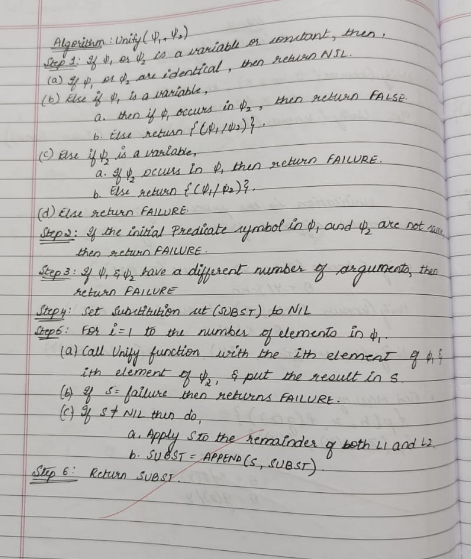 Algorithm : Unify (ψ1, ψ2)
Step 1: If ψ1 or ψ2 is a variable or constant, then,
(a) If ψ1 or ψ2 are identical, then return NIL.
(b) Else if ψ1 is a variable,
a. then if ψ1 occurs in ψ2, then return FALSE
b. Else return {(ψ1/ψ2)}.
(c) Else if ψ2 is a variable,
a. If ψ2 occurs in ψ1 then return FAILURE.
b. Else return {(ψ1/ψ2)}.
(d) Else return FAILURE
Step 2: If the initial Predicate symbol in ψ1 and ψ2 are not same
then return FAILURE.
Step 3: If ψ1 & ψ2 have a different number of arguments, then
return FAILURE
Step 4: Set Substitution set (SUBST) to NIL
Step 5: For i=1 to the number of elements in ψ1.
(a) Call Unify function with the ith element of ψ1 &
ith element of ψ2, & put the result in S.
(b) If S = failure then returns FAILURE.
(c) If S ≠ NIL then do,
a. Apply S to the remainder of both L1 and L2.
b. SUBST = APPEND (S, SUBST).
Step 6: Return SUBST.